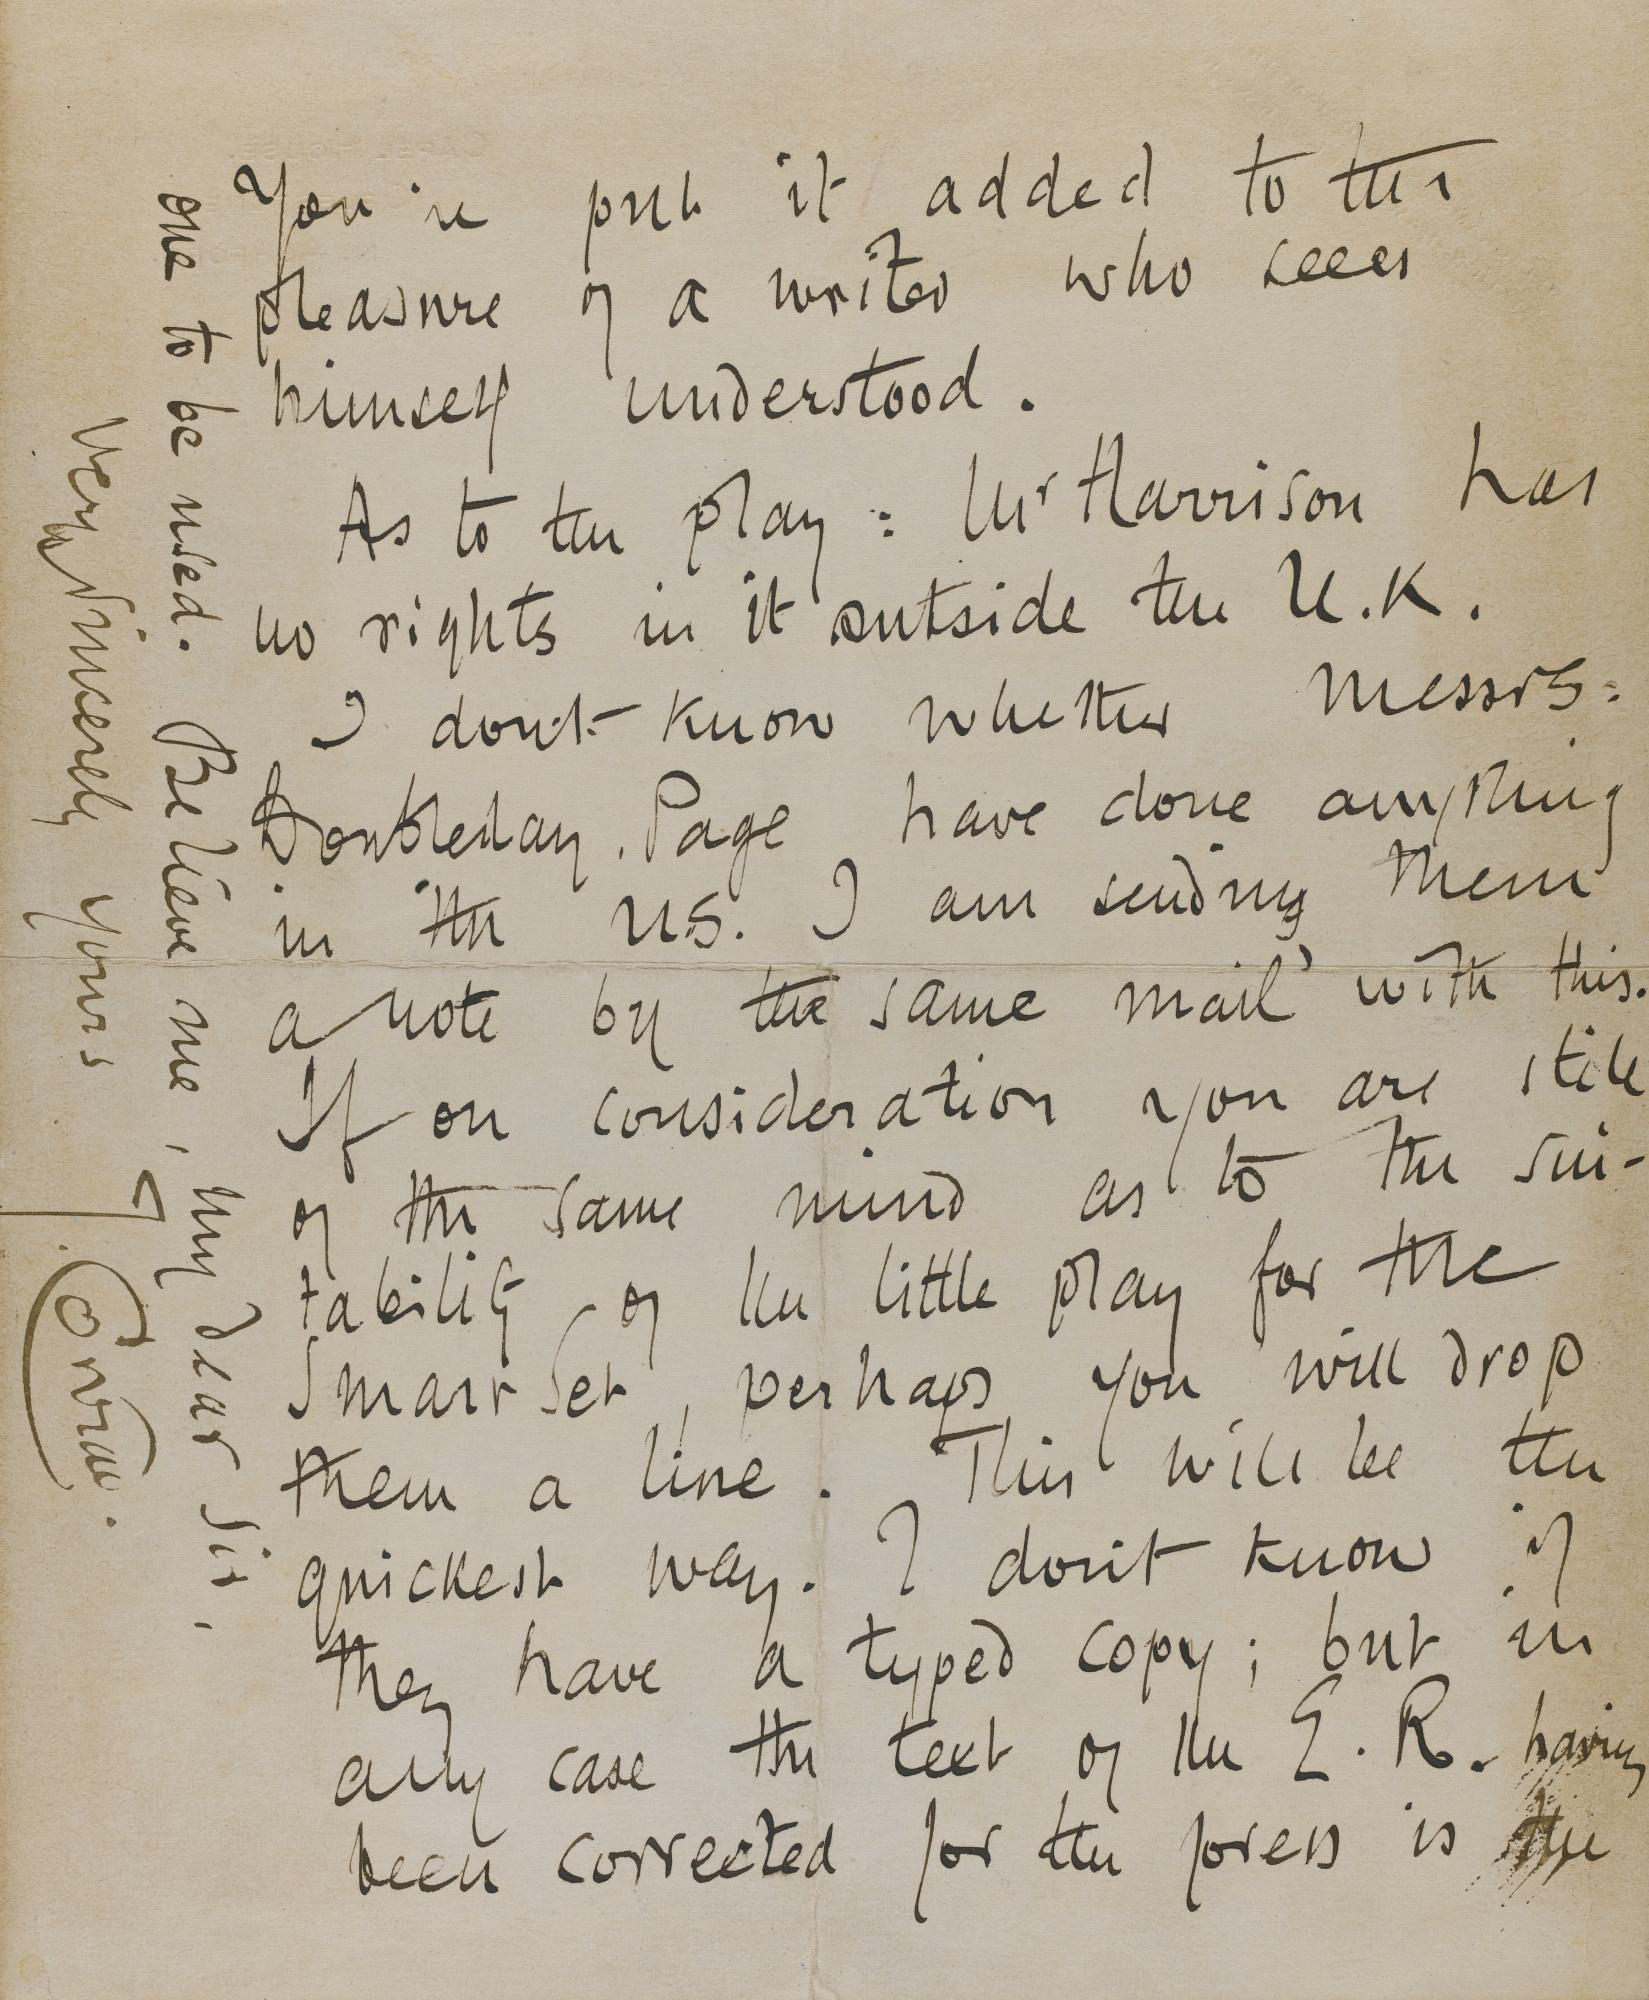 You've put it added to the
pleasure of a writer who sees
himself understood.
As to the play: Mr Harrison has
no rights in it outside the U.K.
I don't know whether Messrs:
Doubleday. Page have done anything
in the U.S. I am sending them
a note by the same mail with this.
If on consideration you are still
of the same mind as to the sui-
tability of the little play for the
Smart Set, perhaps you will drop
them a line. This will be the
quickest way. I don't know if
they have a typed copy; but in
any case the text of the E.R. having
been corrected for the press is the
one to be used. Believe me, my dear Sir,
Very sincerely yours
J. Conrad.